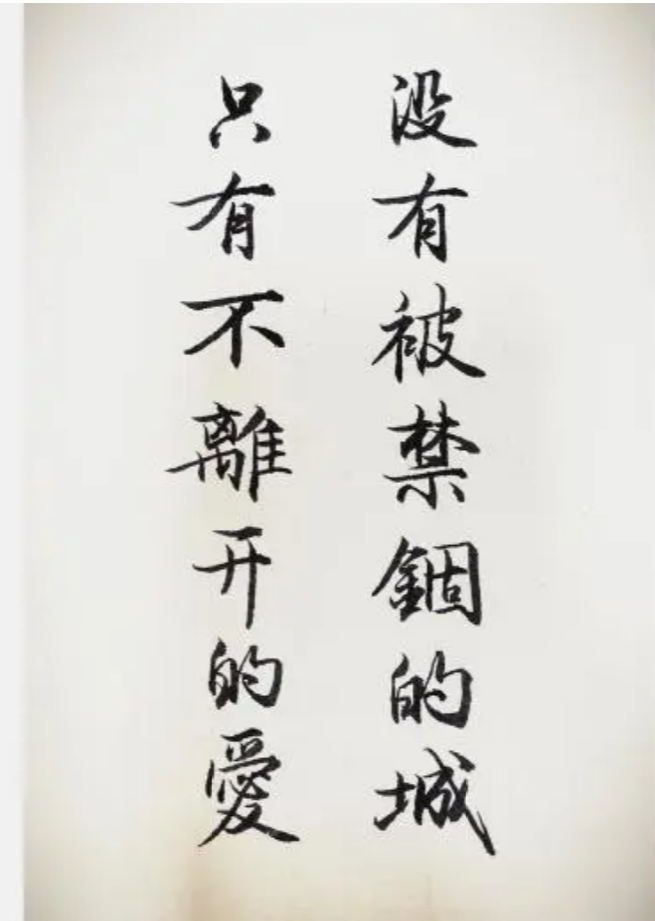 没有被禁錮的城
只有不離开的愛